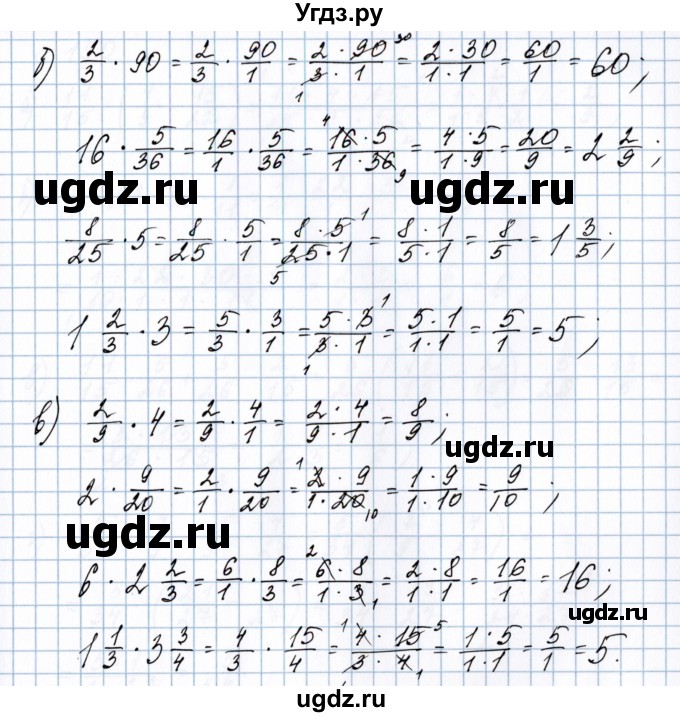 Угдз.ру
б) 2/3 · 90 = 2/3 · 90/1 = (2 · 90 30)/(3 1 · 1) = (2 · 30)/(1 · 1) = 60/1 = 60;
16 · 5/36 = 16/1 · 5/36 = (4 16 · 5)/(1 · 36 9) = (4 · 5)/(1 · 9) = 20/9 = 2 2/9;
ugdz.ru ugdz.ru
8/25 · 5 = 8/25 · 5/1 = (8 · 5 1)/(5 25 · 1) = (8 · 1)/(5 · 1) = 8/5 = 1 3/5;
1 2/3 · 3 = 5/3 · 3/1 = (5 · 3 1)/(3 1 · 1) = (5 · 1)/(1 · 1) = 5/1 = 5;
в) 2/9 · 4 = 2/9 · 4/1 = (2 · 4)/(9 · 1) = 8/9;
ugdz.ru
2 · 9/20 = 2/1 · 9/20 = (1 2 · 9)/(1 · 20 10) = (1 · 9)/(1 · 10) = 9/10;
ugdz.ru
6 · 2 2/3 = 6/1 · 8/3 = (2 6 · 8)/(1 · 3 1) = (2 · 8)/(1 · 1) = 16/1 = 16;
ugdz.ru
1 1/3 · 3 3/4 = 4/3 · 15/4 = (1 4 · 15 5)/(3 1 · 4 1) = (1 · 5)/(1 · 1) = 5/1 = 5.
ugdz.ru